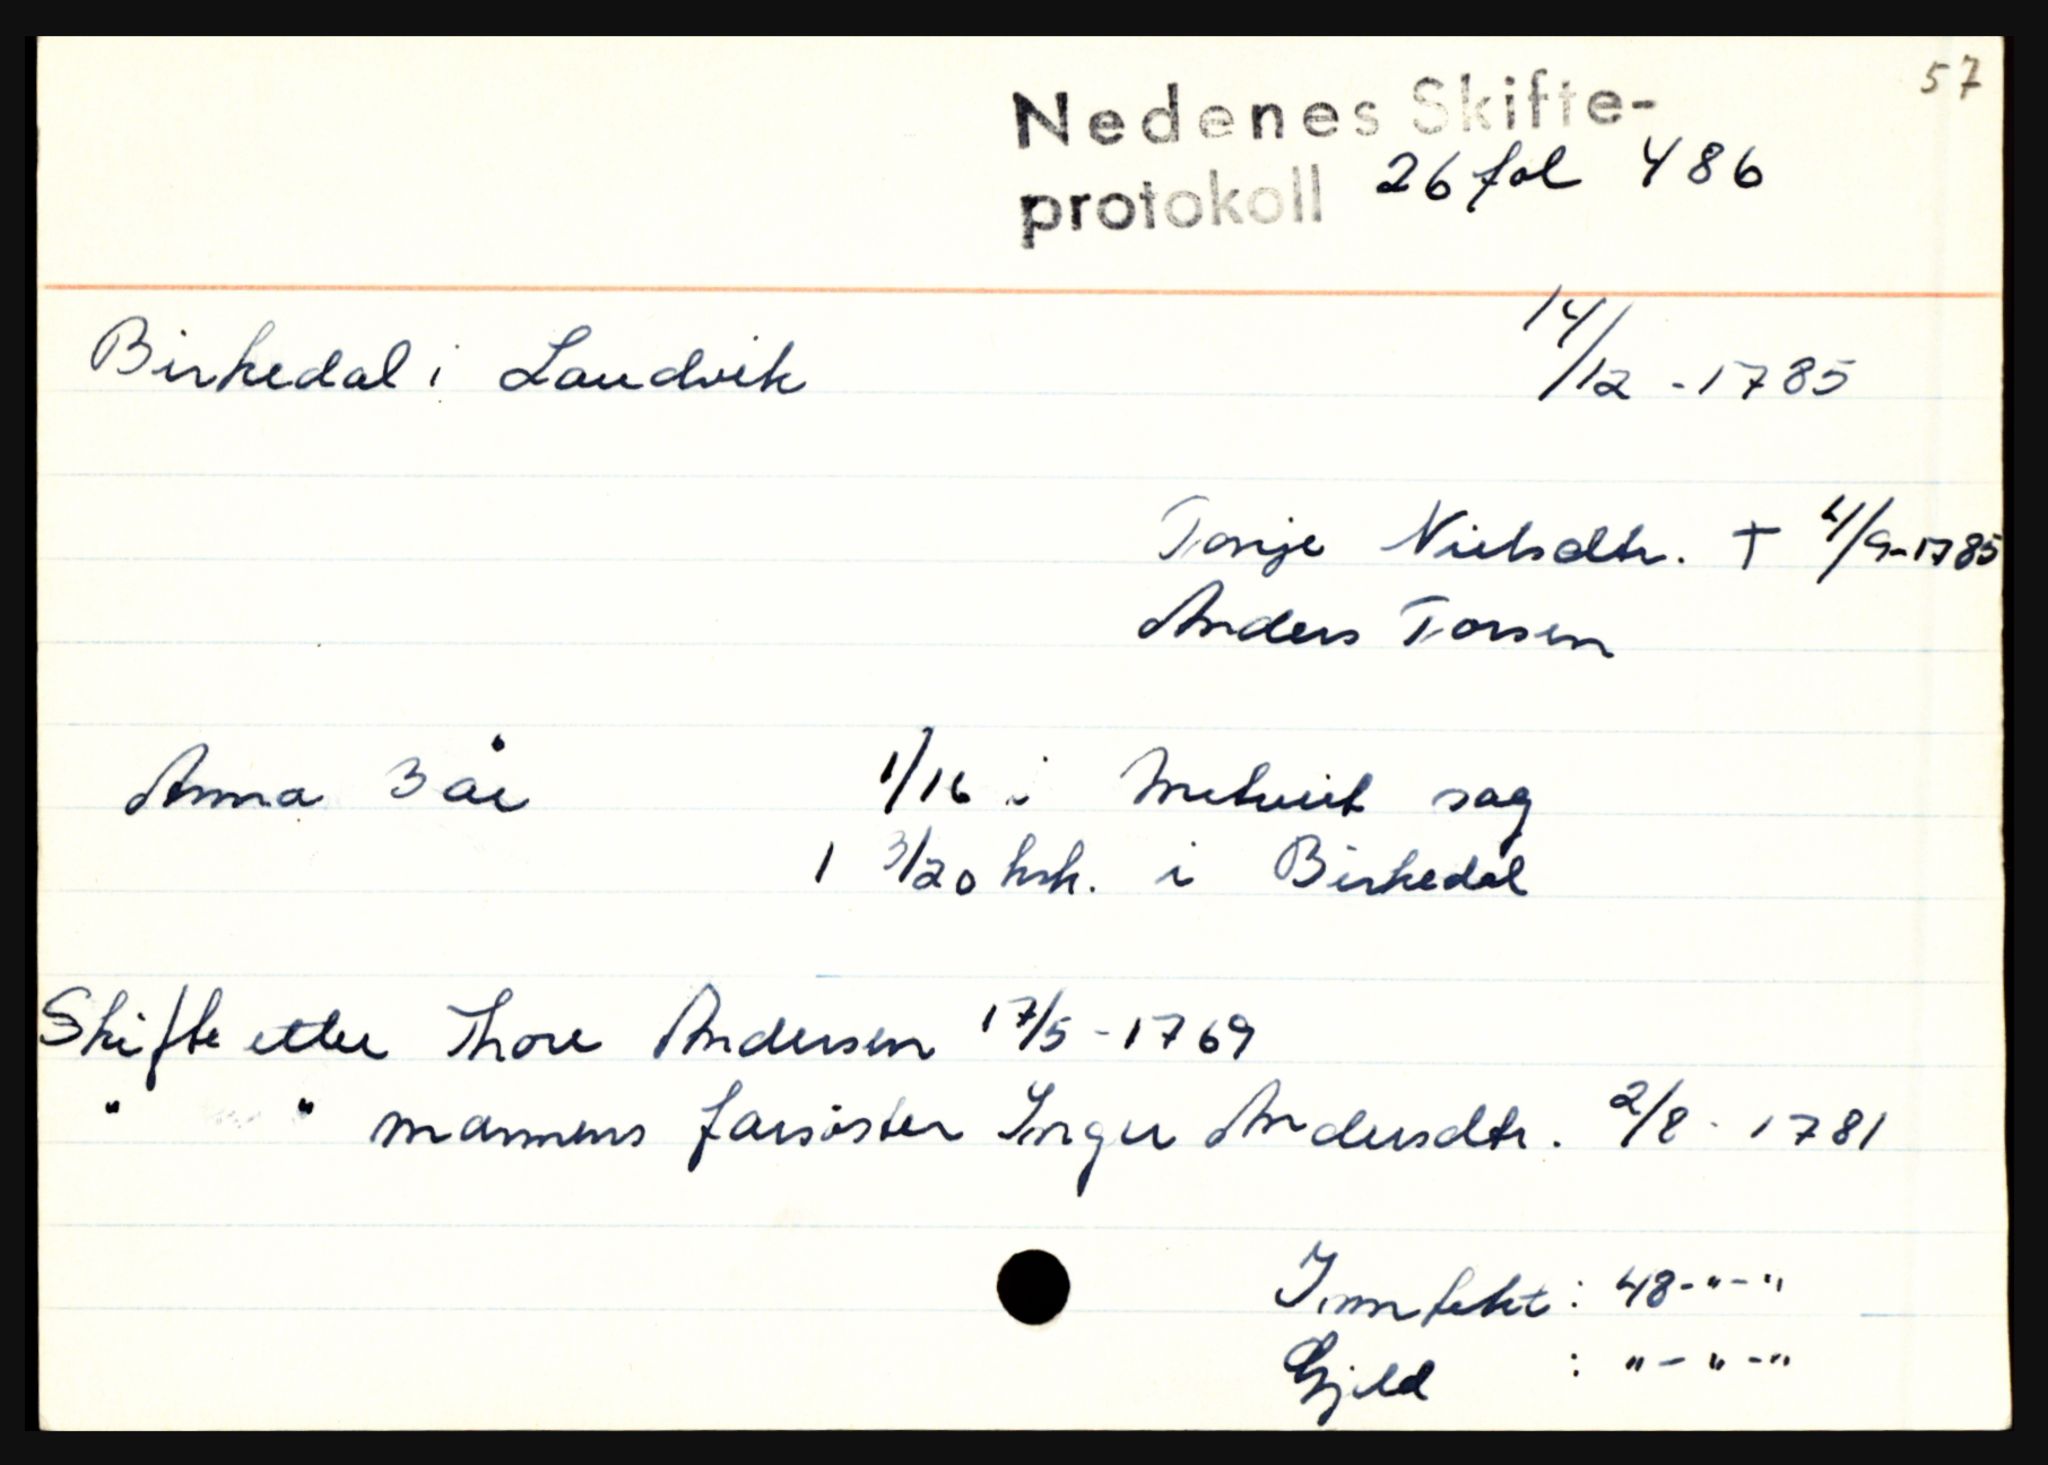 57
Nedenes Skifte-
protokoll 26 fol 486
Birkedal i Landvik 14/12 - 1785
Tonje Nielsdtr. † 4/9-1785
Anders Torsen
Anna 3 år 1/16 i sag
1 3/20 hsk. i Birkedal
Skifte etter Thore Andersen 17/5 - 1769
" " mannens farsøster Inger Andersdtr. 2/8 - 1781
Inntekt : 48-"-"
Gjeld : "-"-"